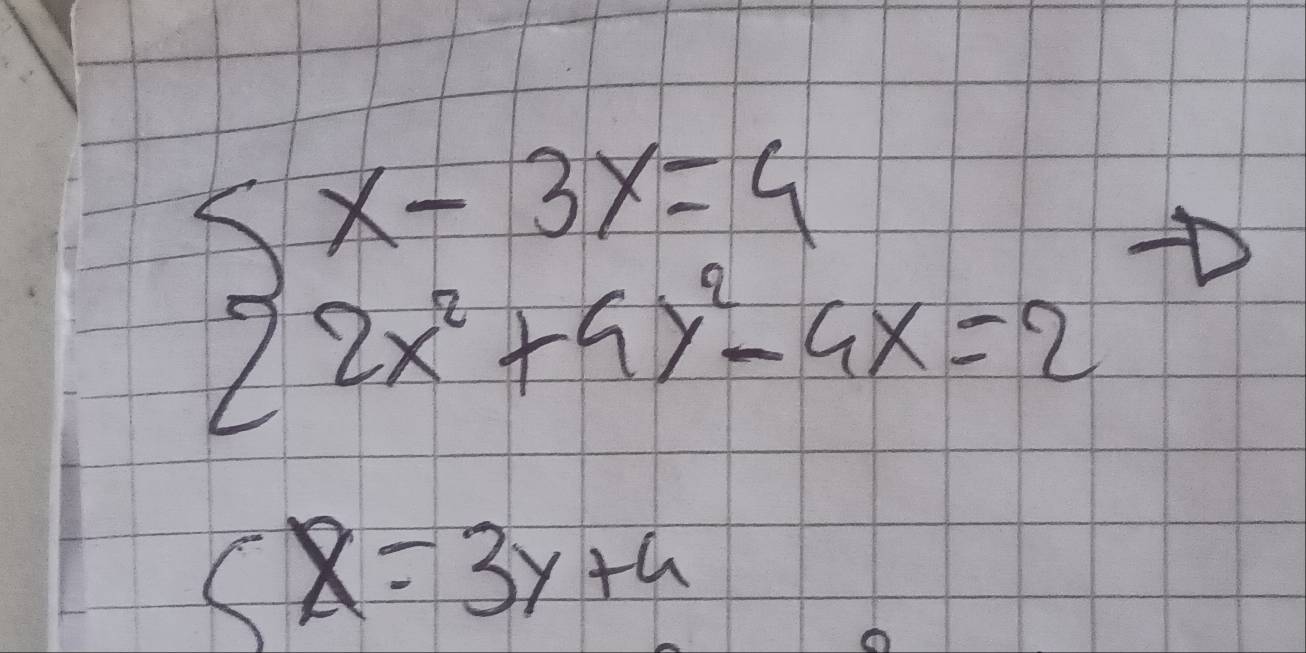 x - 3y = 4
2x² + 4y² - 4x = 2 →
x = 3y + 4